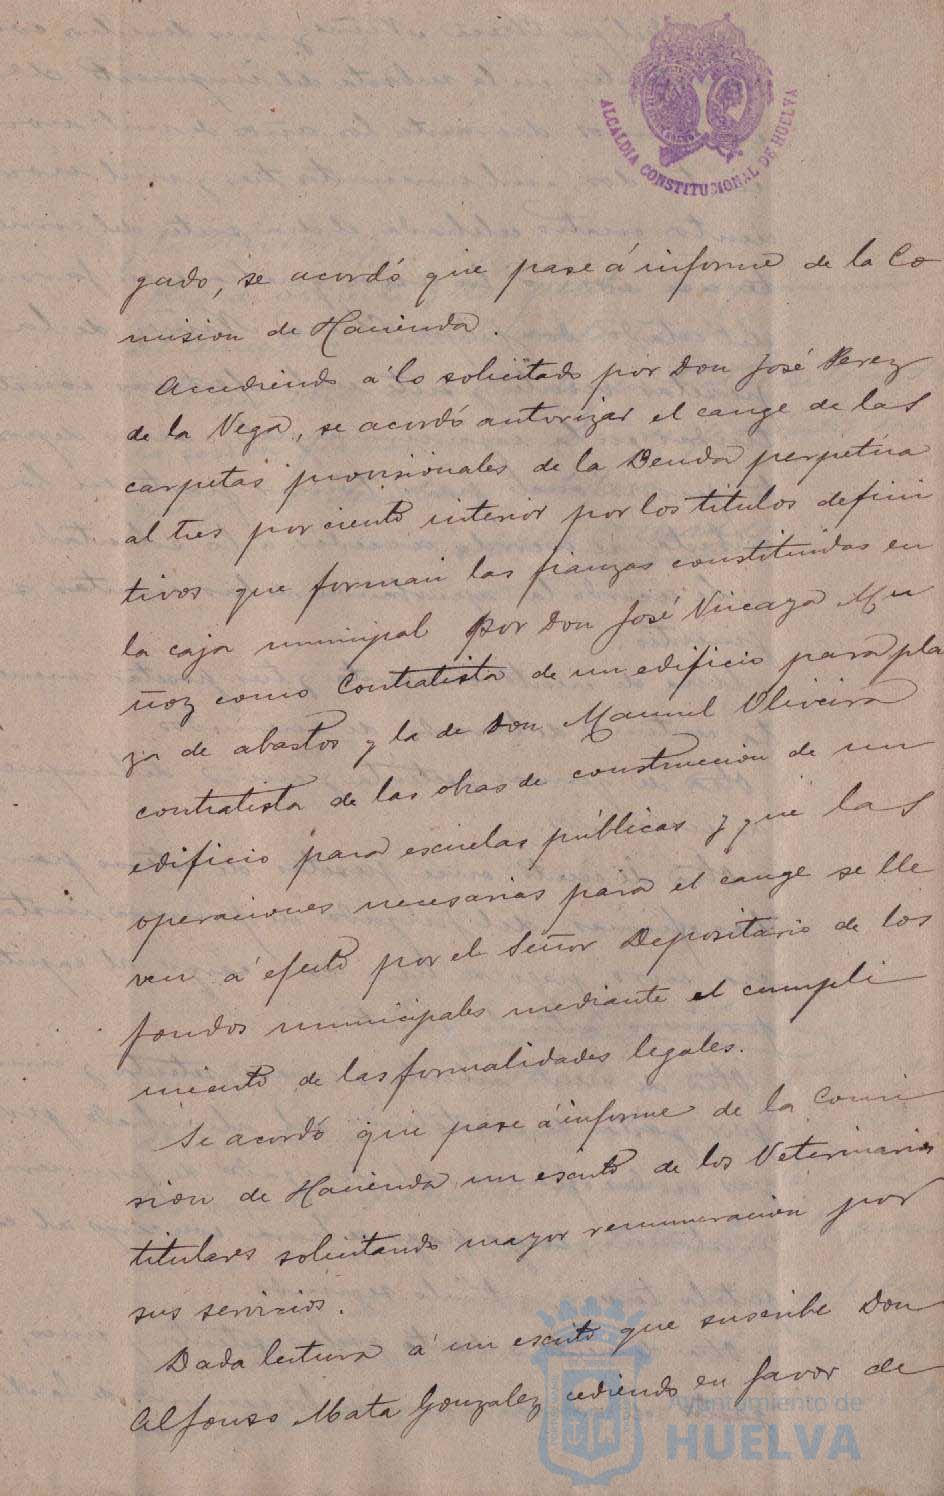 ALCALDIA CONSTITUCIONAL DE HUELVA
gado, se acordó que pase á informe de la Co
mision de Hacienda.
Accediendo á lo solicitado por Don José Perez
de la Vega, se acordó autorizar el cange de las
carpetas provisionales de la Deuda perpétua
al tres por ciento interior por los titulos defini
tivos que forman las fianzas constituidas en
la caja municipal por Don José Vizcaya Mu
ñoz como Contratista de un edificio para pla
za de abastos y la de Don Manuel Oliveira
contratista de las obras de construccion de un
edificio para escuelas públicas y que las
operaciones necesarias para el cange se lle
ven á efecto por el Señor Depositario de los
fondos municipales mediante el cumpli
miento de las formalidades legales.
Se acordó que pase á informe de la Comi
sion de Hacienda un escrito de los Veterinarios
titulares solicitando mayor remuneracion por
sus servicios.
Dada lectura á un escrito que suscribe Don
Alfonso Mata Gonzalez cediendo en favor de
Ayuntamiento de
HUELVA